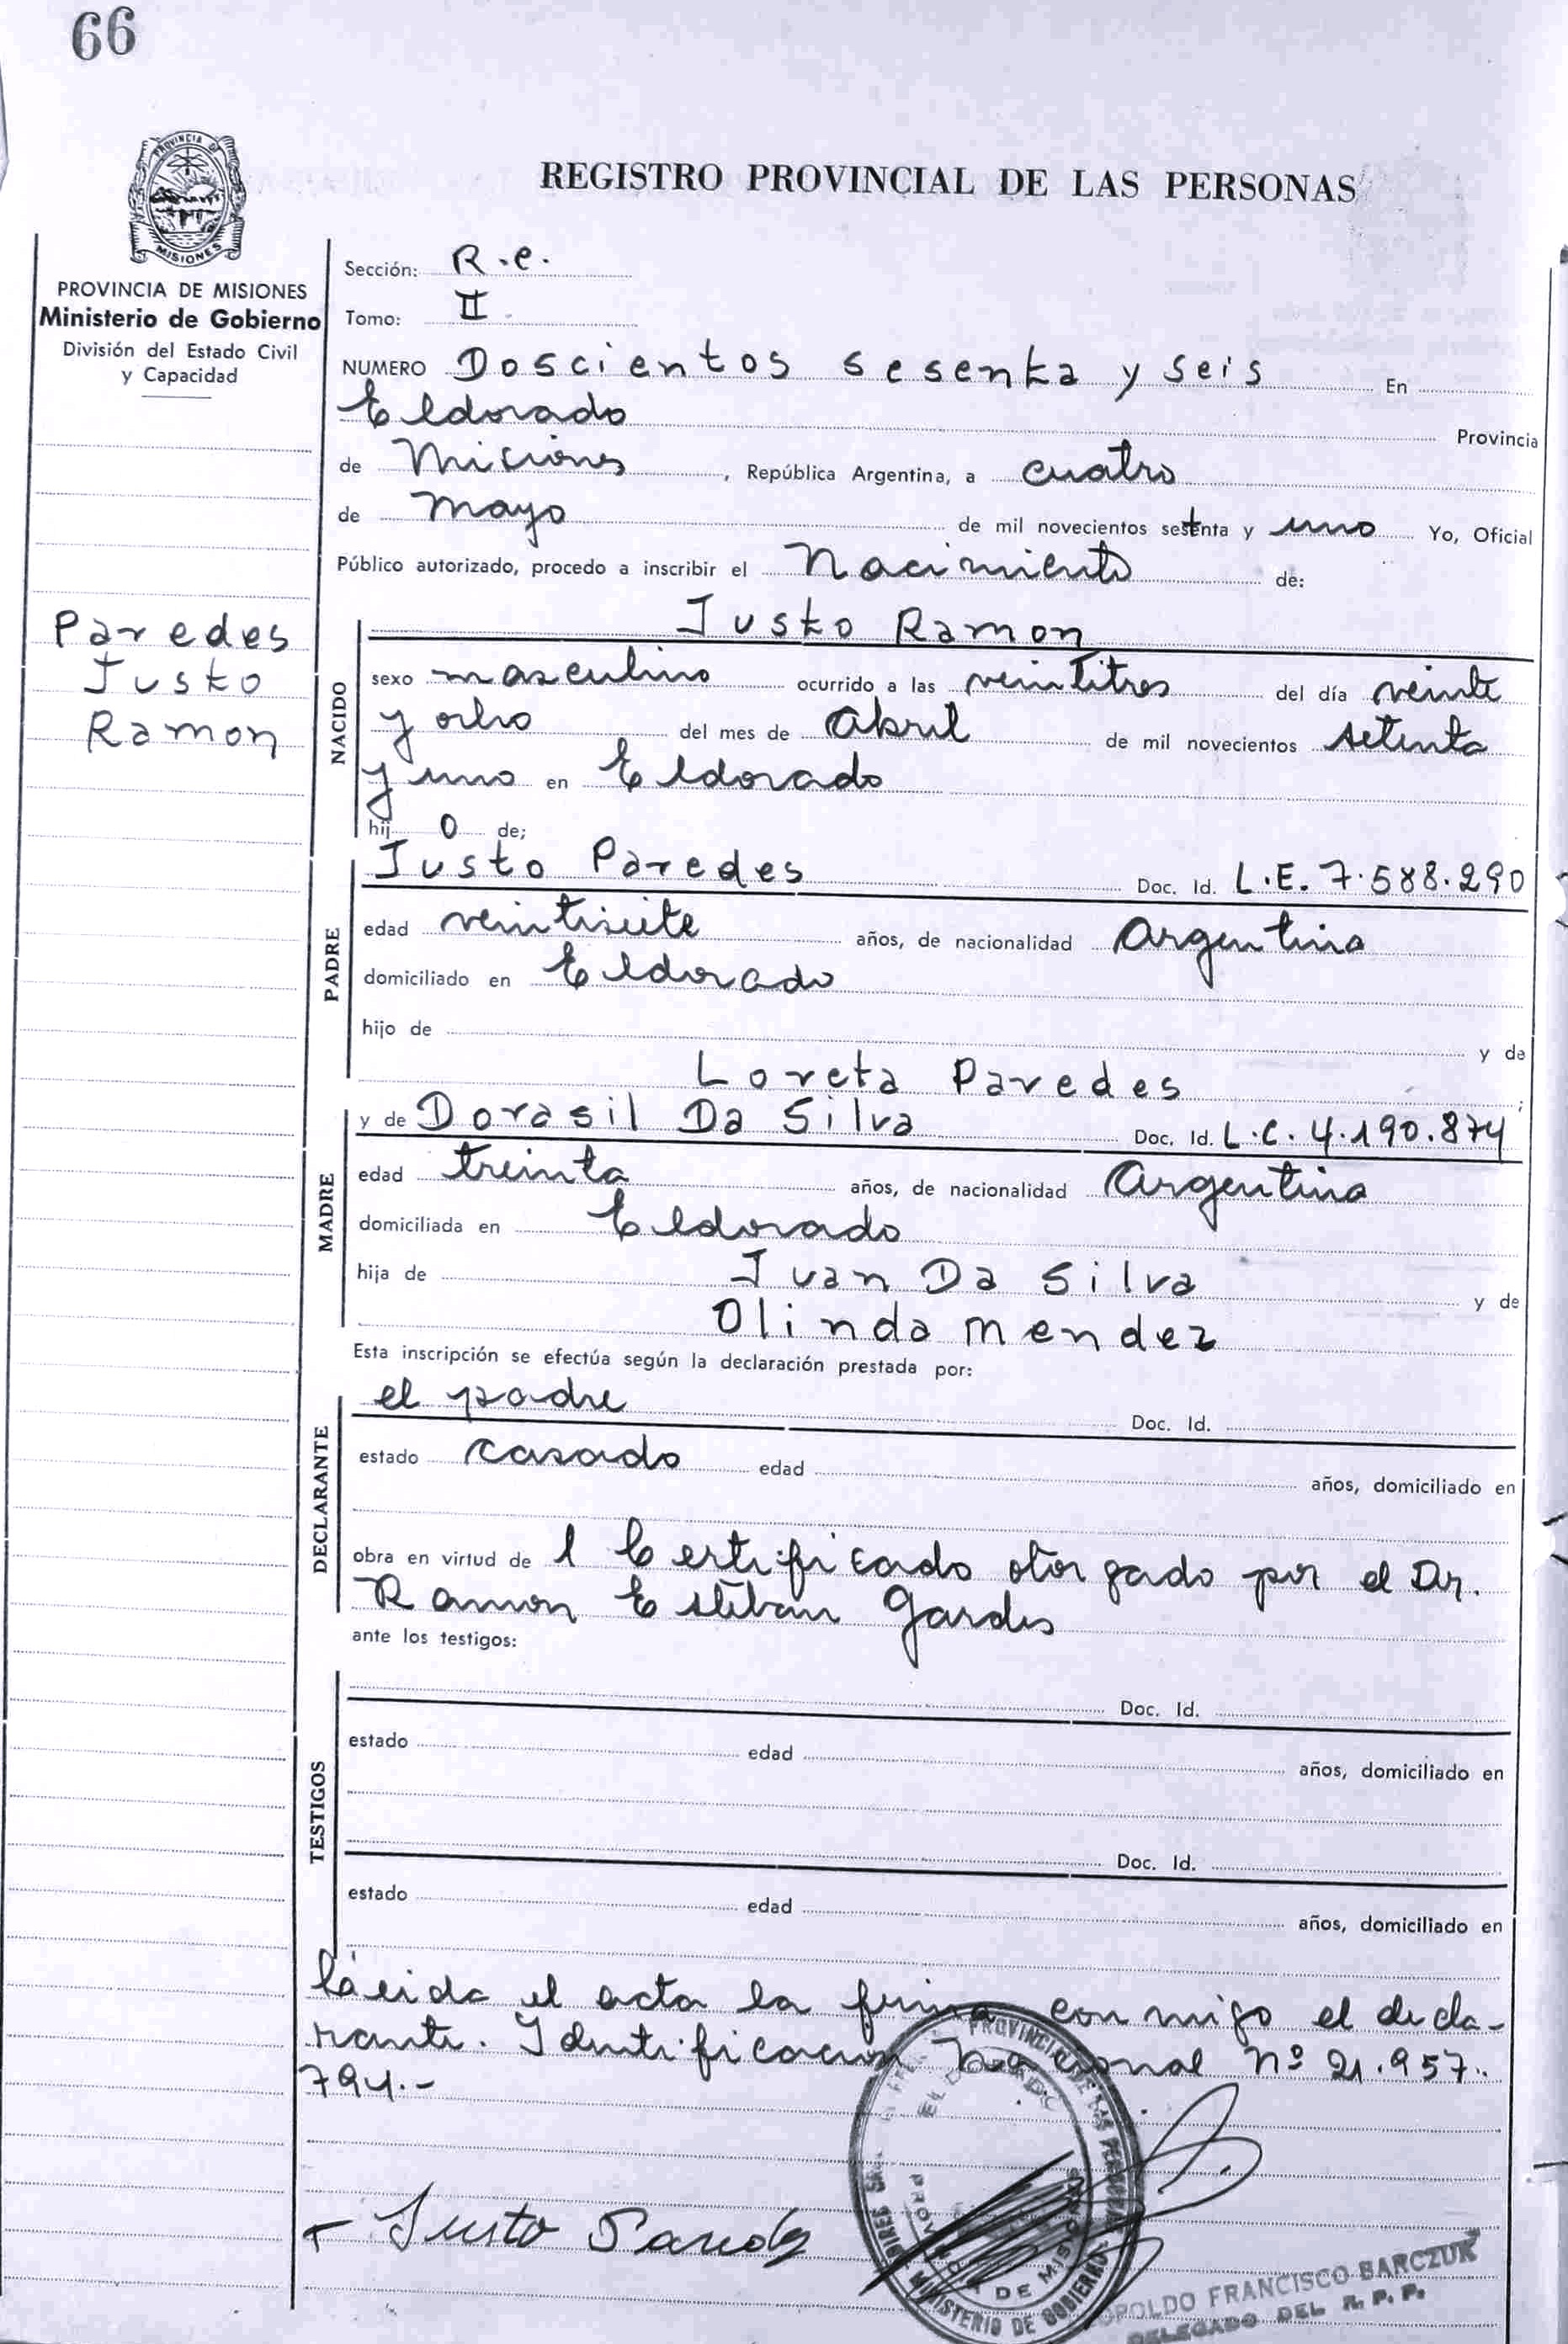 66
REGISTRO PROVINCIAL DE LAS PERSONAS
PROVINCIA DE
MISIONES
PROVINCIA DE MISIONES
Ministerio de Gobierno
División del Estado Civil
y Capacidad
Paredes
Justo
Ramon
Sección: R.e.
Tomo: II
NUMERO Doscientos sesenta y seis En
Eldorado Provincia
de Misiones, República Argentina, a cuatro
de mayo de mil novecientos setenta y uno Yo, Oficial
Público autorizado, procedo a inscribir el Nacimiento de:
Justo Ramon
NACIDO
sexo masculino ocurrido a las veintitres del día veinte
y ocho del mes de Abril de mil novecientos setenta
y uno en Eldorado
hij o de;
PADRE
Justo Paredes Doc. Id. L.E. 7.588.290
edad veintisiete años, de nacionalidad Argentina
domiciliado en Eldorado
hijo de y de
Loreta Paredes ;
MADRE
y de Dorasil Da Silva Doc. Id. L.C. 4.190.874
edad treinta años, de nacionalidad Argentina
domiciliada en Eldorado
hija de Juan Da Silva y de
Olinda Mendez
Esta inscripción se efectúa según la declaración prestada por:
DECLARANTE
el padre Doc. Id.
estado casado edad años, domiciliado en
obra en virtud de l Certificado otorgado por el Dr.
Ramon Esteban Gardes
ante los testigos:
TESTIGOS
Doc. Id.
estado edad años, domiciliado en
Doc. Id.
estado edad años, domiciliado en
el acta la firma conmigo el decla-
rante. Identificacion Nacional nº 21.957.
794.-
Justo Paredes
PROVINCIAL DE LAS PERSONAS
ELDORADO
PROVINCIA DE MISIONES
MINISTERIO DE GOBIERNO
POLDO FRANCISCO BARCZUK
DELEGADO DEL R. P. P.